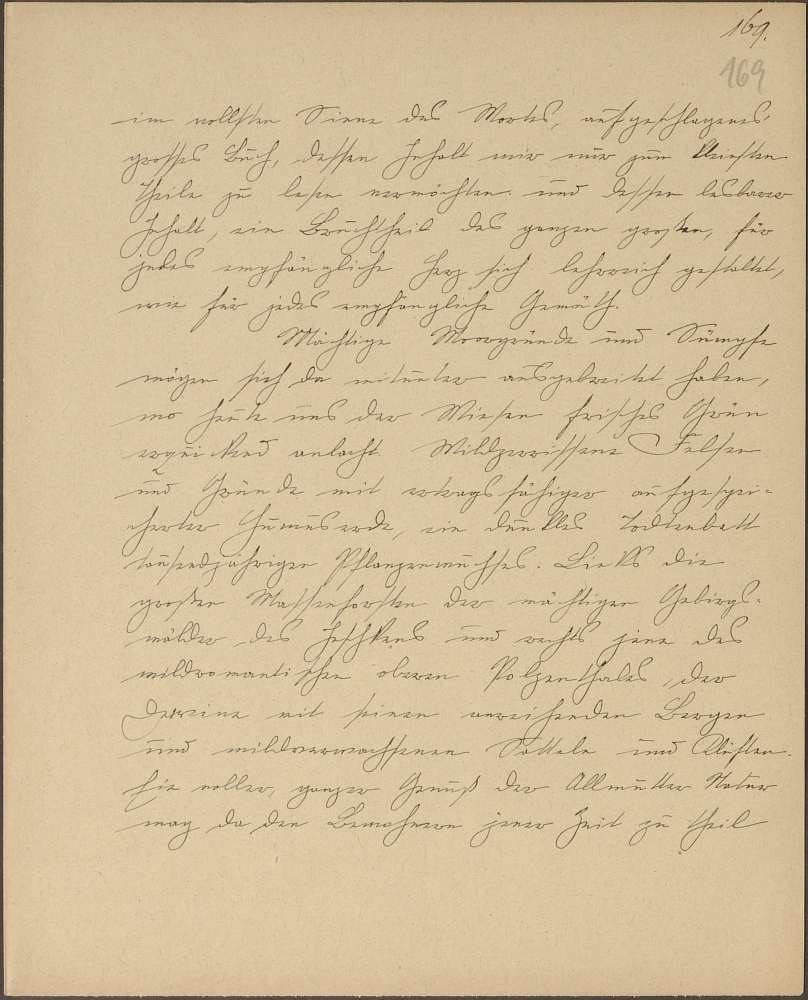 169.
169
im vollsten Sinne des Wortes, aufgeschlagenes
grosses Buch, dessen Inhalt wir nur zum kleinsten
Theile zu lesen vermöchten und dessen lesbarer
Inhalt, ein Bruchtheil des ganzen großen, für
jedes empfängliche Herz sich lehrreich gestaltet,
wie für jedes empfängliche Gemüth.
Mächtige Moorgründe und Sümpfe
mögen sich da mitunter ausgebreitet haben,
wo heute uns der Wiesen frisches Grün
erquickend anlacht. Wildzerrissene Felsen
und Gründe mit ertragsfähiger aufgespei-
cherter Humuserde, ein dunkles Todtenbett
tausendjährigen Pflanzenwuchses. Links die
großen Massenforsten der mächtigen Gebirgs-
wälder des Jeschkens und rechts jene des
wildromantischen oberen Polzenthales, der
mit seinen anreihenden Bergen
und wildverwachsenen Satteln und Klüften.
Ein voller, ganzer Genuß der Allmutter Natur
mag da den Bewohnern jener Zeit zu theil